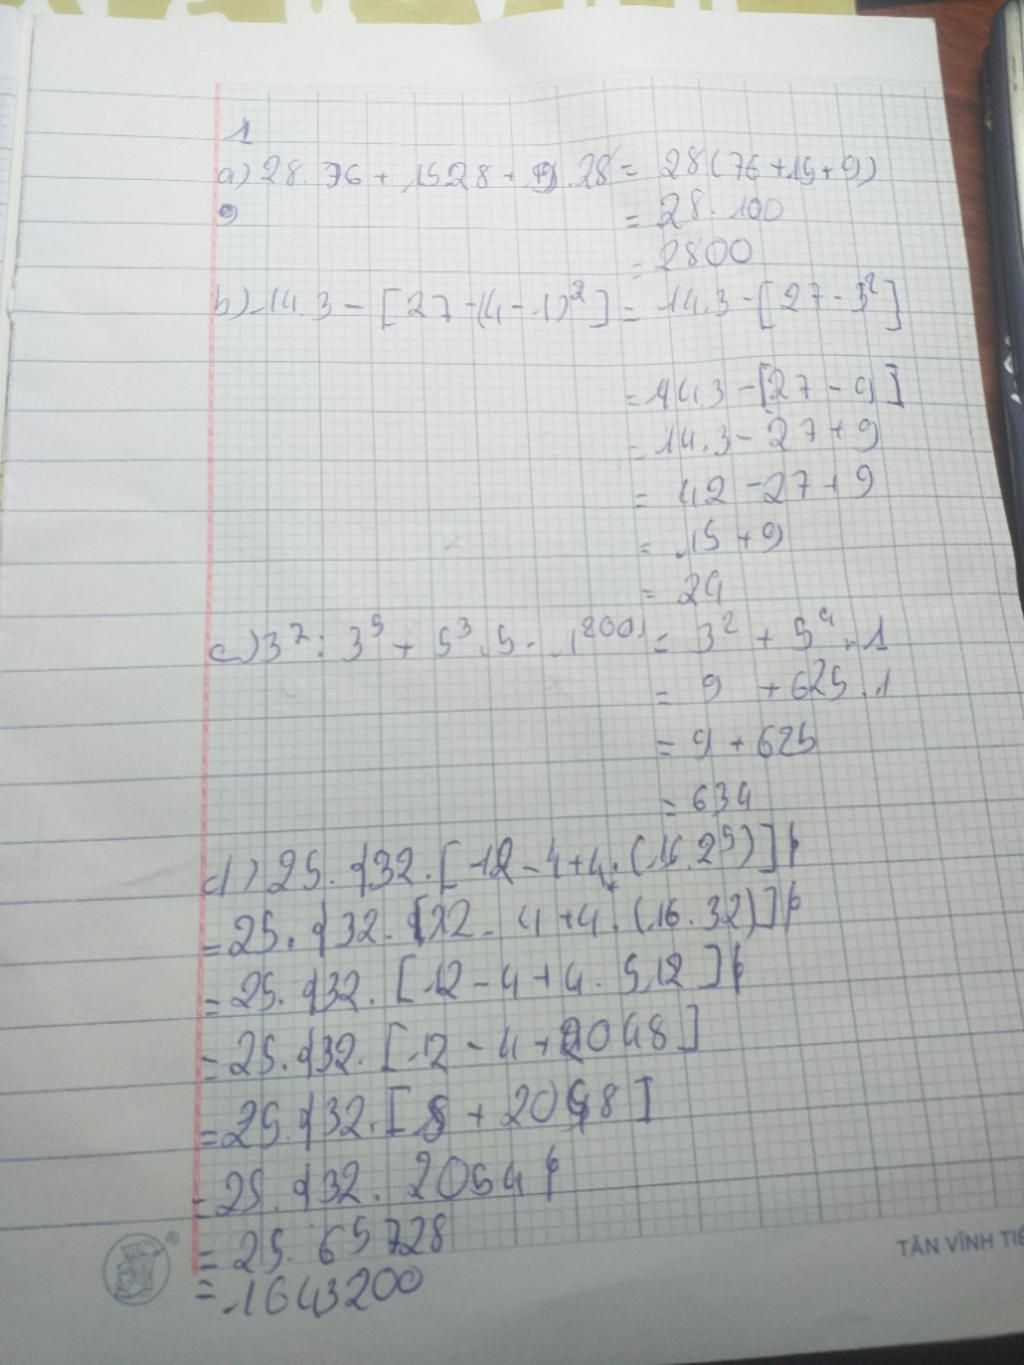 1
a) 28.76 + 15.28 + 9.28 = 28(76+15+9)
= 28.100
= 2800
b) 14.3 - [27-(4-1)²] = 14.3 - [27-3²]
= 14.3 - [27-9]
= 14.3 - 27 + 9
= 42 - 27 + 9
= 15 + 9
= 24
c) 3⁷ : 3⁵ + 5³.5 . 1⁸⁰⁰ = 3² + 5⁴.1
= 9 + 625.1
= 9 + 625
= 634
d) 25.{32.[12-4+4.(16.2⁵)]}
= 25.{32.[12-4+4.(16.32)]}
= 25.{32.[12-4+4.512]}
= 25.{32.[12-4+2048]
= 25.{32.[8+2048]
= 25.{32.2054}
= 25.65728
= 1643200
TÂN VĨNH TIẾ